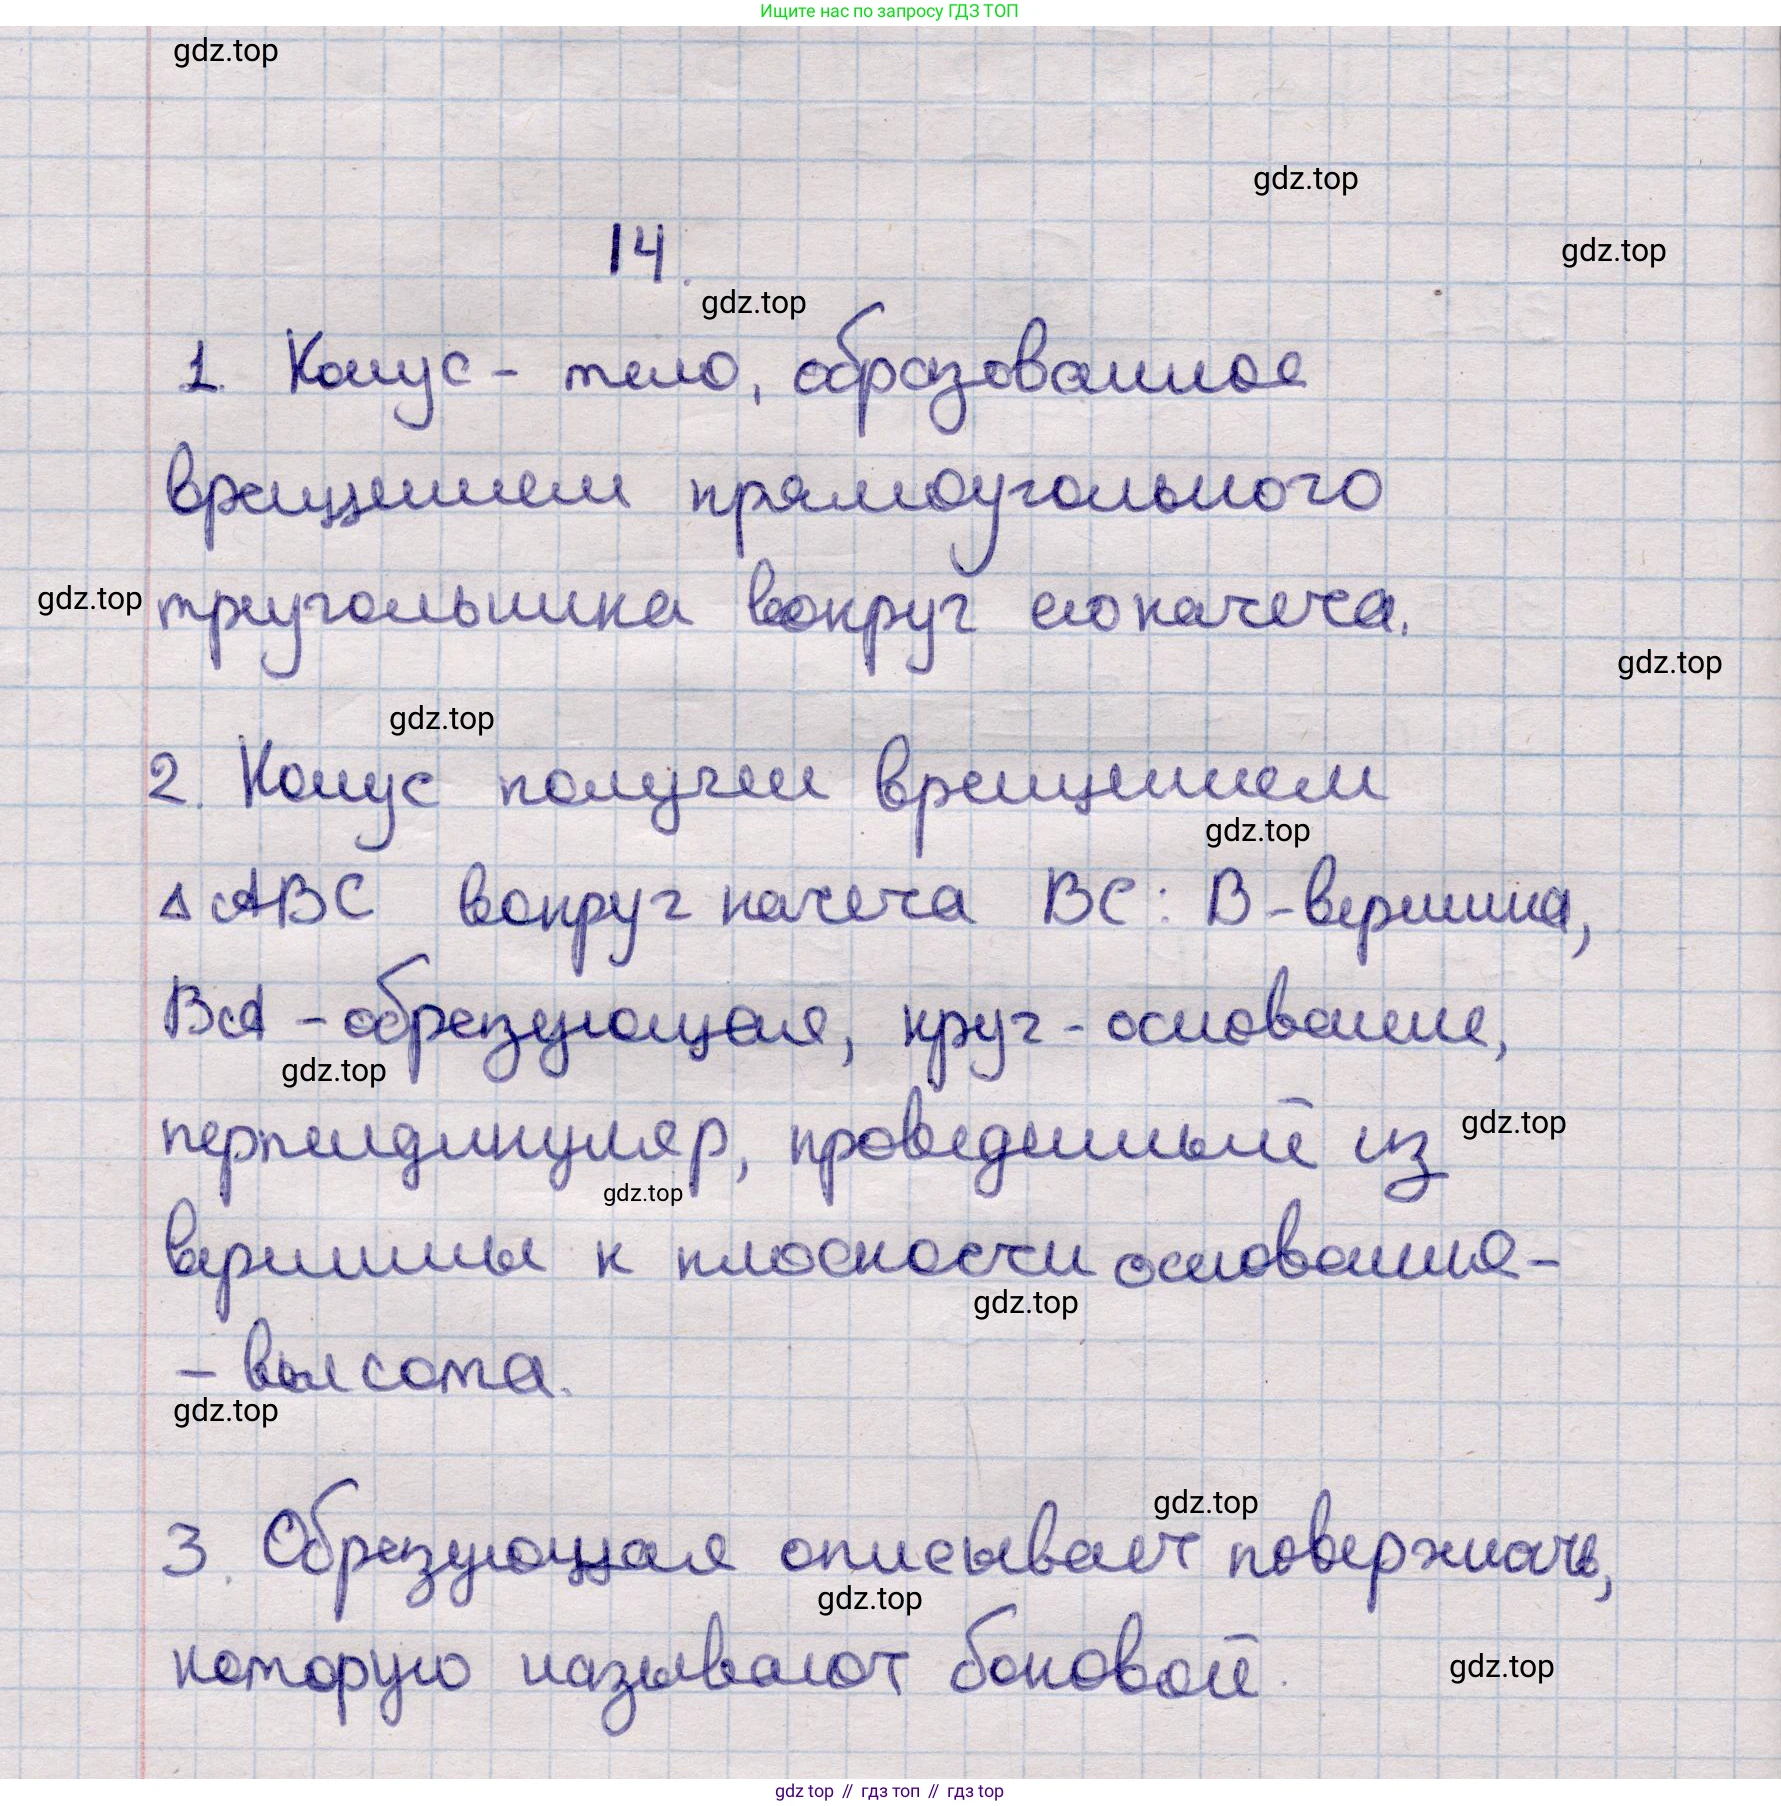 Ищите нас по запросу ГДЗ ТОП
gdz.top
gdz.top
14.
gdz.top
gdz.top
1. Конус - тело, образованное
вращением прямоугольного
gdz.top
треугольника вокруг его катета.
gdz.top
gdz.top
2. Конус получен вращением
gdz.top
△ ABC вокруг катета BC: B - вершина,
BA - образующая, круг - основание,
gdz.top
gdz.top
перпендикуляр, проведенный из
gdz.top
вершины к плоскости основания -
gdz.top
- высота.
gdz.top
gdz.top
3. Образующая описывает поверхность,
gdz.top
которую называют боковой.
gdz.top
gdz top // гдз топ // гдз top